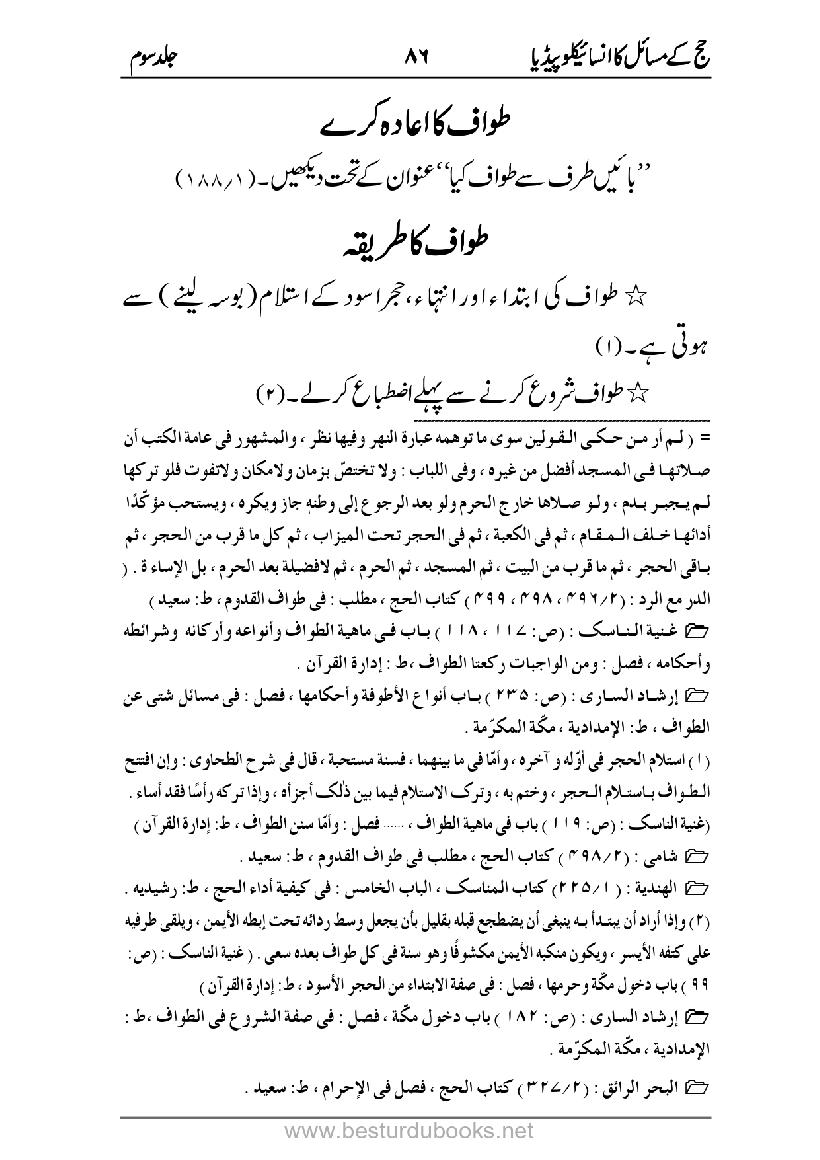 حج کے مسائل کا انسائیکلوپیڈیا ۸۶ جلد سوم
طواف کا اعادہ کرے
”بائیں طرف سے طواف کیا“ عنوان کے تحت دیکھیں۔(۱/۱۸۸)
طواف کا طریقہ
☆ طواف کی ابتداء اور انتہاء، حجر اسود کے استلام (بوسہ لینے) سے
ہوتی ہے۔(۱)
☆ طواف شروع کرنے سے پہلے اضطباع کر لے۔(۲)
= ( لم أر من حكى القولين سوى ما توهمه عبارة النهر وفيها نظر ، والمشهور فى عامة الكتب أن
صلاتها فى المسجد أفضل من غيره ، وفى اللباب : ولا تختصّ بزمان ولامكان ولاتفوت فلو تركها
لم يجبر بدم ، ولو صلاها خارج الحرم ولو بعد الرجوع إلى وطنه جاز ويكره ، ويستحب مؤكدًا
أدائها خلف المقام ، ثم فى الكعبة ، ثم فى الحجر تحت الميزاب ، ثم كل ما قرب من الحجر ، ثم
باقى الحجر ، ثم ما قرب من البيت ، ثم المسجد ، ثم الحرم ، ثم لافضيلة بعد الحرم ، بل الإساءة . (
الدر مع الرد : (۲/۴۹۶ ، ۴۹۸ ، ۴۹۹ ) كتاب الحج ، مطلب : فى طواف القدوم ، ط: سعيد )
غنية الناسك : (ص: ۱۱۷ ، ۱۱۸ ) باب فى ماهية الطواف وأنواعه وأركانه وشرائطه
وأحكامه ، فصل : ومن الواجبات ركعتا الطواف ،ط : إدارة القرآن .
إرشاد السارى : (ص: ۲۳۵ ) باب أنواع الأطوفة وأحكامها ، فصل : فى مسائل شتى عن
الطواف ، ط: الإمدادية ، مكّة المكرّمة .
(۱) استلام الحجر فى أوّله و آخره ، وأمّا فى ما بينهما ، فسنة مستحبة ، قال فى شرح الطحاوى : وإن افتتح
الطواف باستلام الحجر ، وختم به ، وترك الاستلام فيما بين ذٰلك أجزأه ، وإذا تركه رأسًا فقد أساء .
(غنية الناسك : (ص: ۱۱۹ ) باب فى ماهية الطواف ، ...... فصل : وأمّا سنن الطواف ، ط: إدارة القرآن )
شامى : (۲/۴۹۸ ) كتاب الحج ، مطلب فى طواف القدوم ، ط: سعيد .
الهندية : (۱/۲۲۵) كتاب المناسك ، الباب الخامس : فى كيفية أداء الحج ، ط: رشيديه .
(۲) وإذا أراد أن يبتدأ به ينبغى أن يضطجع قبله بقليل بأن يجعل وسط ردائه تحت إبطه الأيمن ، ويلقى طرفيه
على كتفه الأيسر ، ويكون منكبه الأيمن مكشوفًا وهو سنة فى كل طواف بعده سعى . ( غنية الناسك : (ص:
۹۹ ) باب دخول مكّة وحرمها ، فصل : فى صفة الابتداء من الحجر الأسود ، ط: إدارة القرآن )
إرشاد السارى : (ص: ۱۸۲ ) باب دخول مكّة ، فصل : فى صفة الشروع فى الطواف ،ط :
الإمدادية ، مكّة المكرّمة .
البحر الرائق : (۲/۳۲۷) كتاب الحج ، فصل فى الإحرام ، ط: سعيد .
www.besturdubooks.net